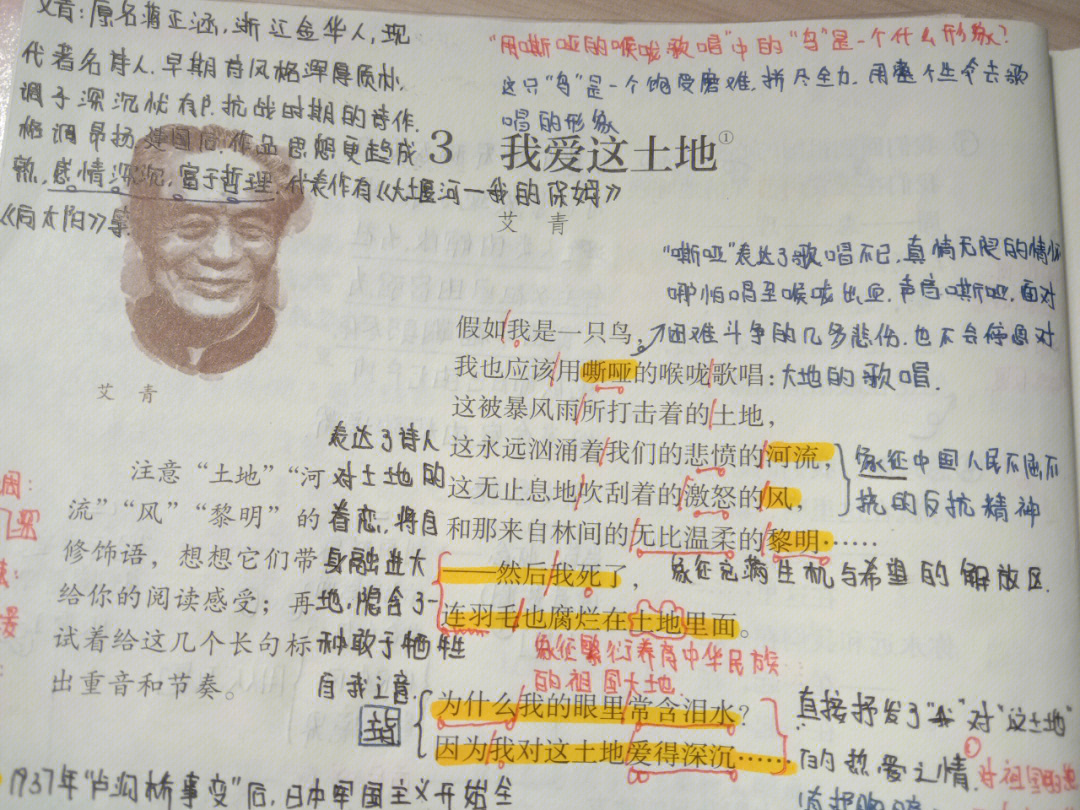 艾青：原名蒋正涵，浙江金华人，现
代著名诗人。早期诗风格浑厚质朴，
调子深沉忧郁。抗战时期的诗作，
格调昂扬。建国后，作品思想更趋成
熟，感情深沉，富于哲理，代表作有《大堰河—我的保姆》
《向太阳》等
"用嘶哑的喉咙歌唱"中的"鸟"是一个什么形象？
这只"鸟"是一个饱受磨难，拼尽全力，用整个生命去歌
唱的形象
3 我爱这土地①
艾 青
"嘶哑"表达了歌唱不已，真情无限的情怀
哪怕唱至喉咙出血，声音嘶哑，面对
困难斗争的几多悲伤，也不会停息对
大地的歌唱．
艾 青
假如/我是一只鸟，
我也应该/用嘶哑的喉咙/歌唱：
这被暴风雨/所打击着的/土地，
这永远汹涌着/我们的悲愤的/河流，
这无止息地/吹刮着的/激怒的/风，
和那来自林间的/无比温柔的/黎明……
——然后/我死了，
连羽毛/也腐烂在/土地里面。
为什么/我的眼里/常含泪水？
因为/我对这土地/爱得深沉……
象征中国人民不屈不
挠的反抗精神
象征充满生机与希望的解放区．
象征繁衍养育中华民族
的祖国大地．
直接抒发了对"这土地"
的热爱之情．
对祖国的
注意"土地""河
流""风""黎明"的
修饰语，想想它们带
给你的阅读感受；再
试着给这几个长句标
出重音和节奏。
表达了诗人
对土地的
眷恋，将自
身融进大
地，隐含了一
种敢于牺牲
自我之意．
1937年"卢沟桥事变"后，日本军国主义开始全